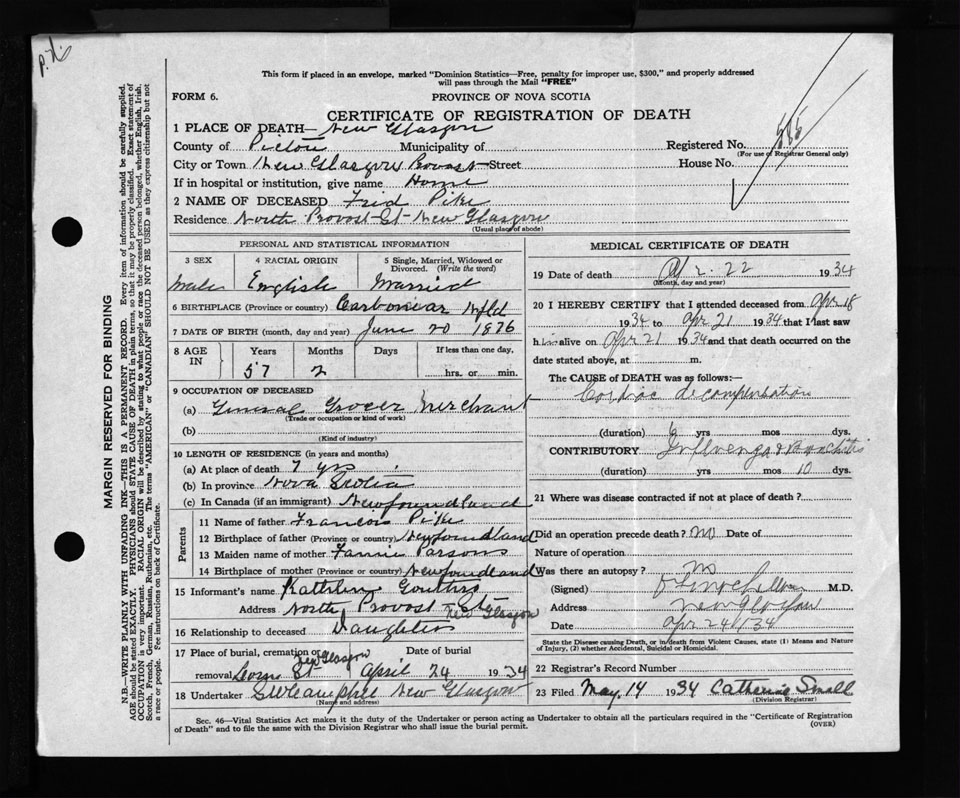 This form if placed in an envelope, marked "Dominion Statistics—Free, penalty for improper use, $300," and properly addressed
will pass through the Mail "FREE"
FORM 6.
PROVINCE OF NOVA SCOTIA
CERTIFICATE OF REGISTRATION OF DEATH
1 PLACE OF DEATH— New Glasgow
County of Pictou Municipality of
Registered No.
(For use of Registrar General only)
City or Town New Glasgow Provost Street House No.
If in hospital or institution, give name Home
2 NAME OF DECEASED Frid Pike
Residence North Provost St New Glasgow
(Usual place of abode)
MARGIN RESERVED FOR BINDING
N.B.—WRITE PLAINLY WITH UNFADING INK—THIS IS A PERMANENT RECORD. Every item of information should be carefully supplied.
AGE should be stated EXACTLY. PHYSICIANS should STATE CAUSE OF DEATH in plain terms, so that it may be properly classified. Exact statement of
OCCUPATION is very important. RACIAL ORIGIN will be described by stating to what people or race the deceased person belonged, whether English, Irish,
Scotch, French, German, Russian, Ruthenian, etc. The terms "AMERICAN" or "CANADIAN" SHOULD NOT BE USED as they express citizenship but not
a race or people. Fee instructions on back of Certificate.
PERSONAL AND STATISTICAL INFORMATION
3 SEX
4 RACIAL ORIGIN
5 Single, Married, Widowed or
Divorced. (Write the word)
Male English Married
6 BIRTHPLACE (Province or country) Carbonear Nfld
7 DATE OF BIRTH (month, day and year) June 20 1876
8 AGE
IN
Years Months Days If less than one day,
57 2
hrs. or min.
9 OCCUPATION OF DECEASED
(a) General Grocer Merchant
(Trade or occupation or kind of work)
(b)
(Kind of industry)
10 LENGTH OF RESIDENCE (in years and months)
(a) At place of death 7 yrs
(b) In province Nova Scotia
(c) In Canada (if an immigrant) Newfoundland
Parents
11 Name of father Francois Pike
12 Birthplace of father (Province or country) Newfoundland
13 Maiden name of mother Fannie Parsons
14 Birthplace of mother (Province or country) Newfoundland
15 Informant's name Kathleen
Address North Provost St New Glasgow
16 Relationship to deceased Daughter
17 Place of burial, cremation or New Glasgow Date of burial
removal St April 24 1934
18 Undertaker New Glasgow
(Name and address)
MEDICAL CERTIFICATE OF DEATH
19 Date of death Apr. 22 1934
(Month, day and year)
20 I HEREBY CERTIFY that I attended deceased from Apr 18
1934 to Apr 21 1934 that I last saw
him alive on Apr 21 1934 and that death occurred on the
date stated above, at m.
The CAUSE of DEATH was as follows:—
Cordiac decompensation
(duration) 6 yrs mos dys.
CONTRIBUTORY Influenza & Bronchitis
(duration) yrs mos 10 dys.
21 Where was disease contracted if not at place of death?
Did an operation precede death? no Date of
Nature of operation
Was there an autopsy? no
(Signed) M.D.
Address New Glasgow
Date Apr 24/34
State the Disease causing Death, or in death from Violent Causes, state (1) Means and Nature
of Injury, (2) whether Accidental, Suicidal or Homicidal.
22 Registrar's Record Number
23 Filed May, 14 1934 Catherine Small
(Division Registrar)
Sec. 46—Vital Statistics Act makes it the duty of the Undertaker or person acting as Undertaker to obtain all the particulars required in the "Certificate of Registration
of Death" and to file the same with the Division Registrar who shall issue the burial permit.
(OVER)